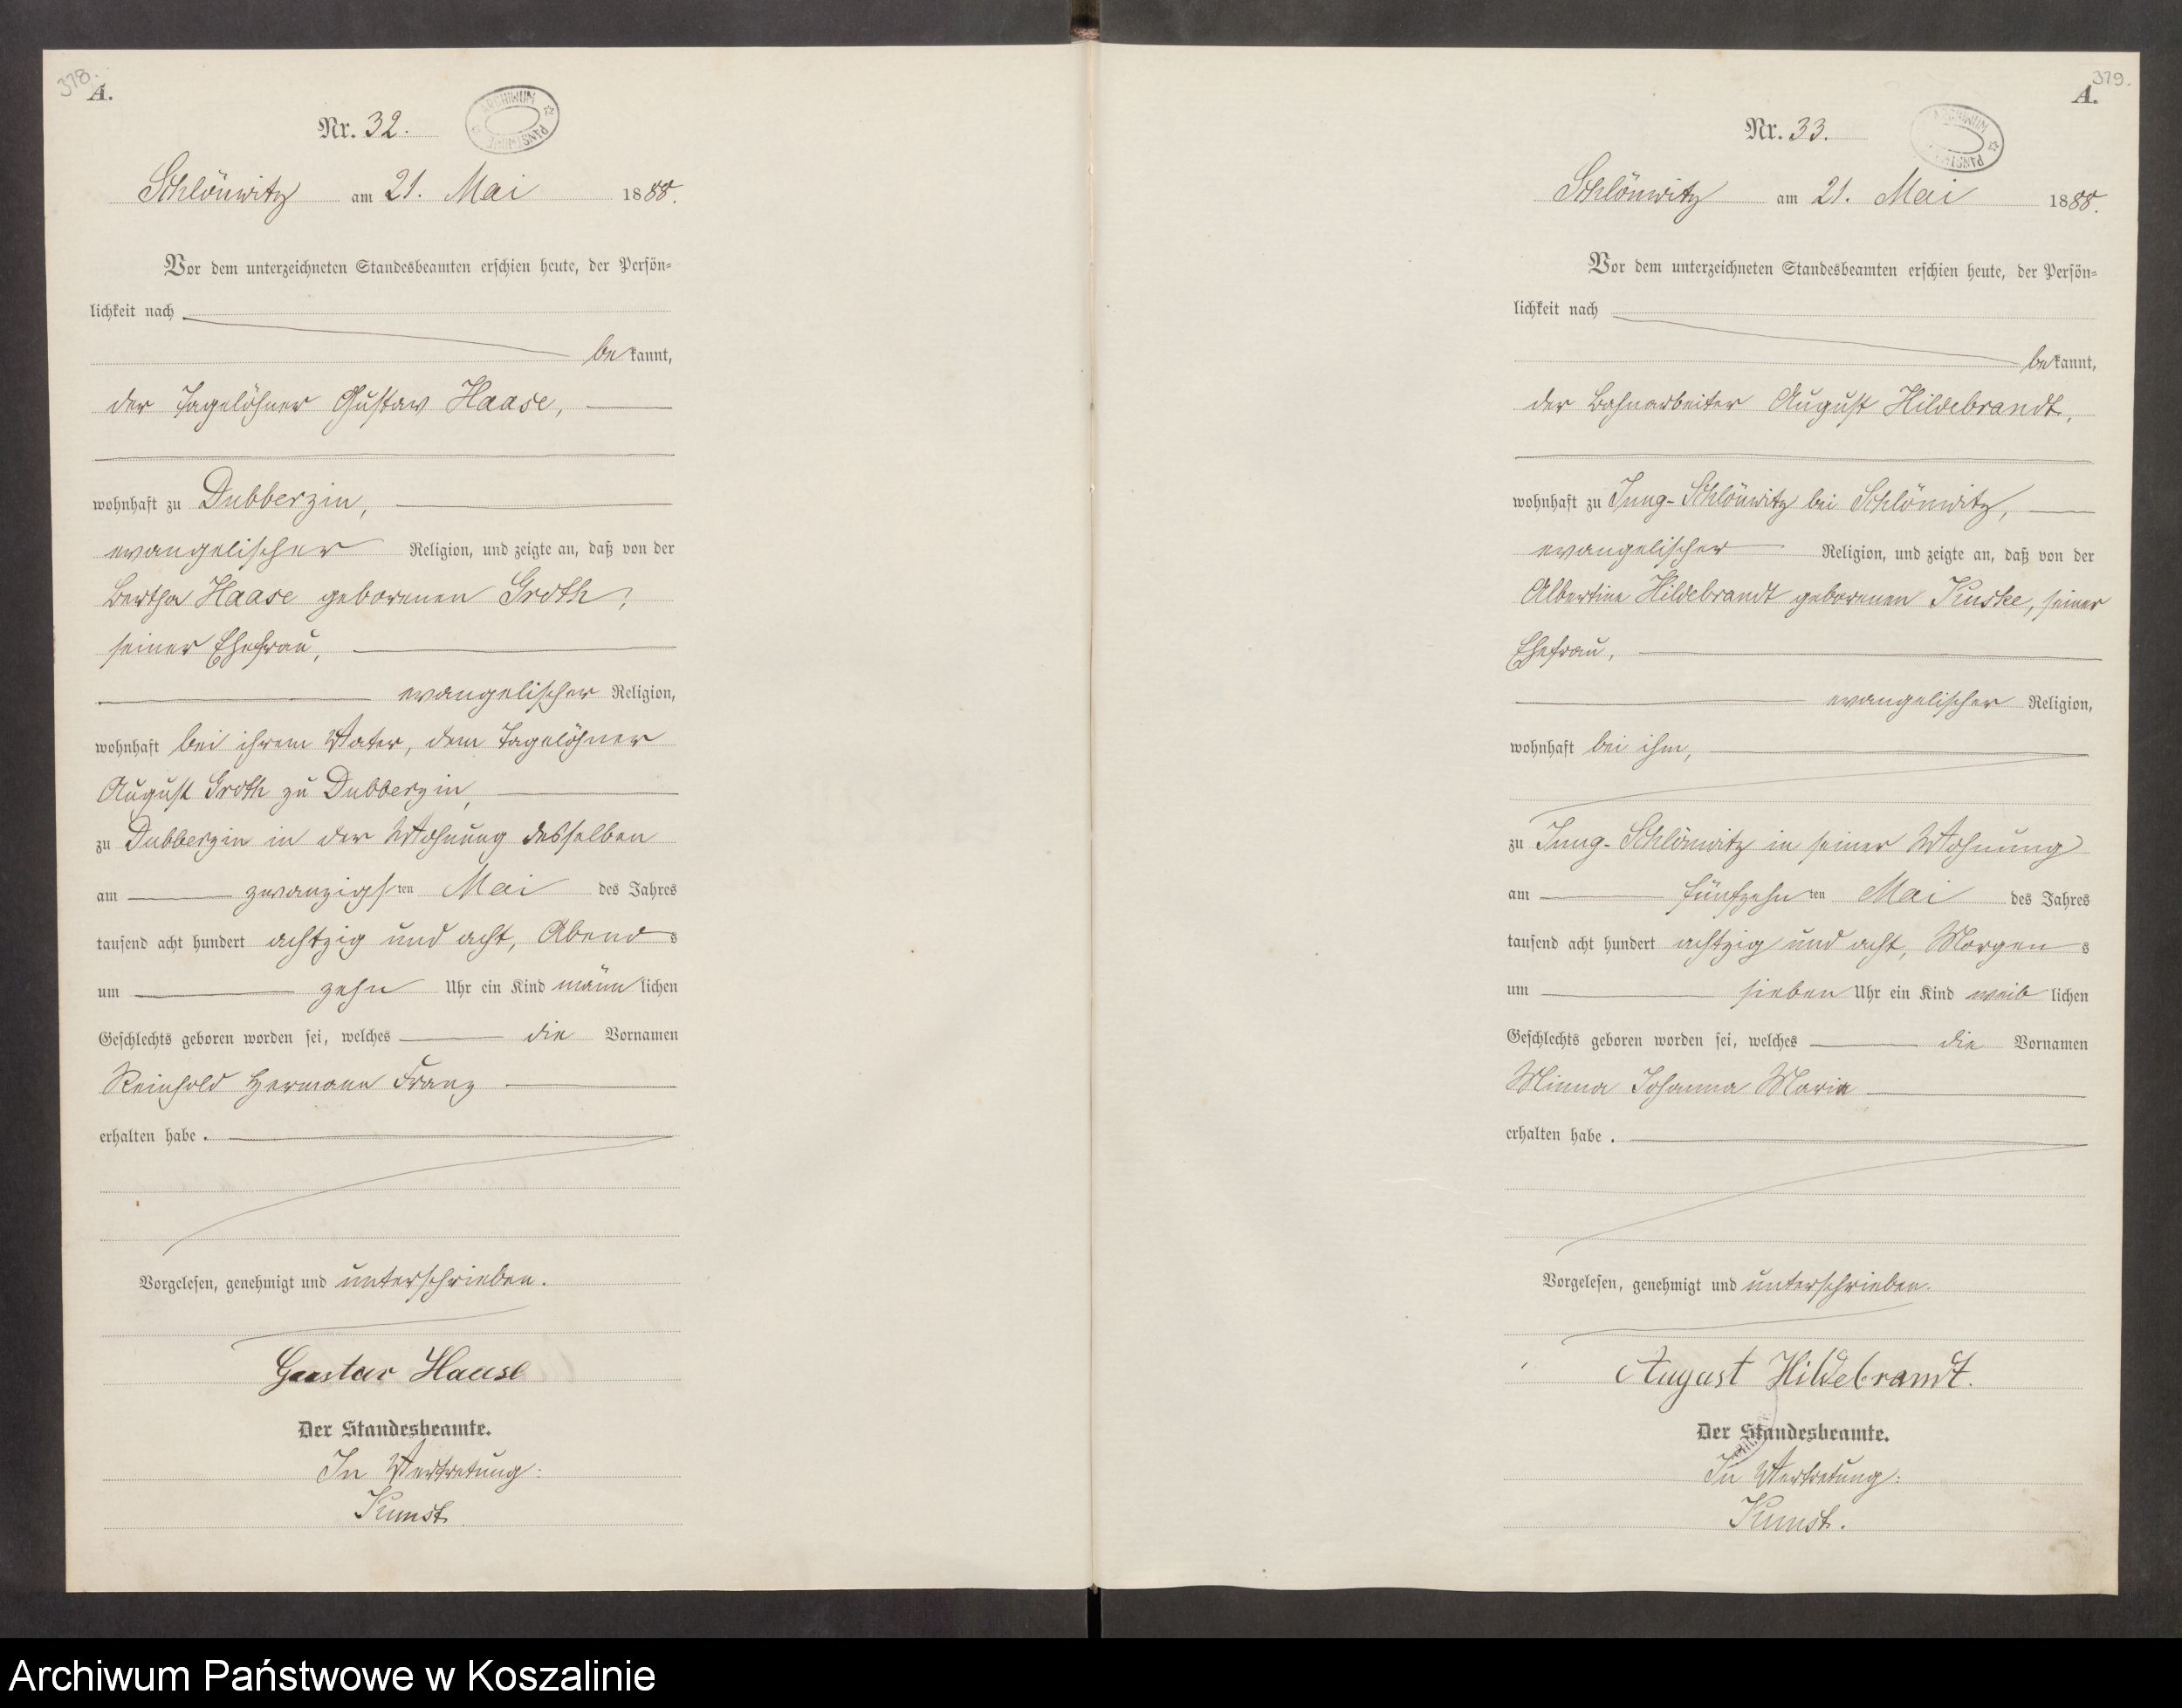 378.
A.
Nr. 32.
ARCHIWUM PAŃSTWOWE
Schlönwitz am 21. Mai 1888.
Vor dem unterzeichneten Standesbeamten erschien heute, der Persön=
lichkeit nach
bekannt,
der Tagelöhner Gustav Haase,
wohnhaft zu Dubberzin,
evangelischer Religion, und zeigte an, daß von der
Bertha Haase geborenen Groth,
seiner Ehefrau,
evangelischer Religion,
wohnhaft bei ihrem Vater, dem Tagelöhner
August Groth zu Dubberzin,
zu Dubberzin in der Wohnung desselben
am zwanzigsten Mai des Jahres
tausend acht hundert achtzig und acht, Abends
um zehn Uhr ein Kind männlichen
Geschlechts geboren worden sei, welches die Vornamen
Reinhold Hermann Franz
erhalten habe.
Vorgelesen, genehmigt und unterschrieben.
Gustav Haase
Der Standesbeamte.
In Vertretung:
Kunst.
379.
A.
Nr. 33.
Schlönwitz am 21. Mai 1888.
Vor dem unterzeichneten Standesbeamten erschien heute, der Persön=
lichkeit nach
bekannt,
der Bahnarbeiter August Hildebrandt,
wohnhaft zu Jung-Schlönwitz bei Schlönwitz,
evangelischer Religion, und zeigte an, daß von der
Albertine Hildebrandt geborenen Kuske, seiner
Ehefrau,
evangelischer Religion,
wohnhaft bei ihm,
zu Jung-Schlönwitz in seiner Wohnung
am fünfzehnten Mai des Jahres
tausend acht hundert achtzig und acht, Morgens
um sieben Uhr ein Kind weiblichen
Geschlechts geboren worden sei, welches die Vornamen
Minna Johanna Marie
erhalten habe.
Vorgelesen, genehmigt und unterschrieben.
August Hildebrandt.
Der Standesbeamte.
In Vertretung:
Kunst.
Archiwum Państwowe w Koszalinie